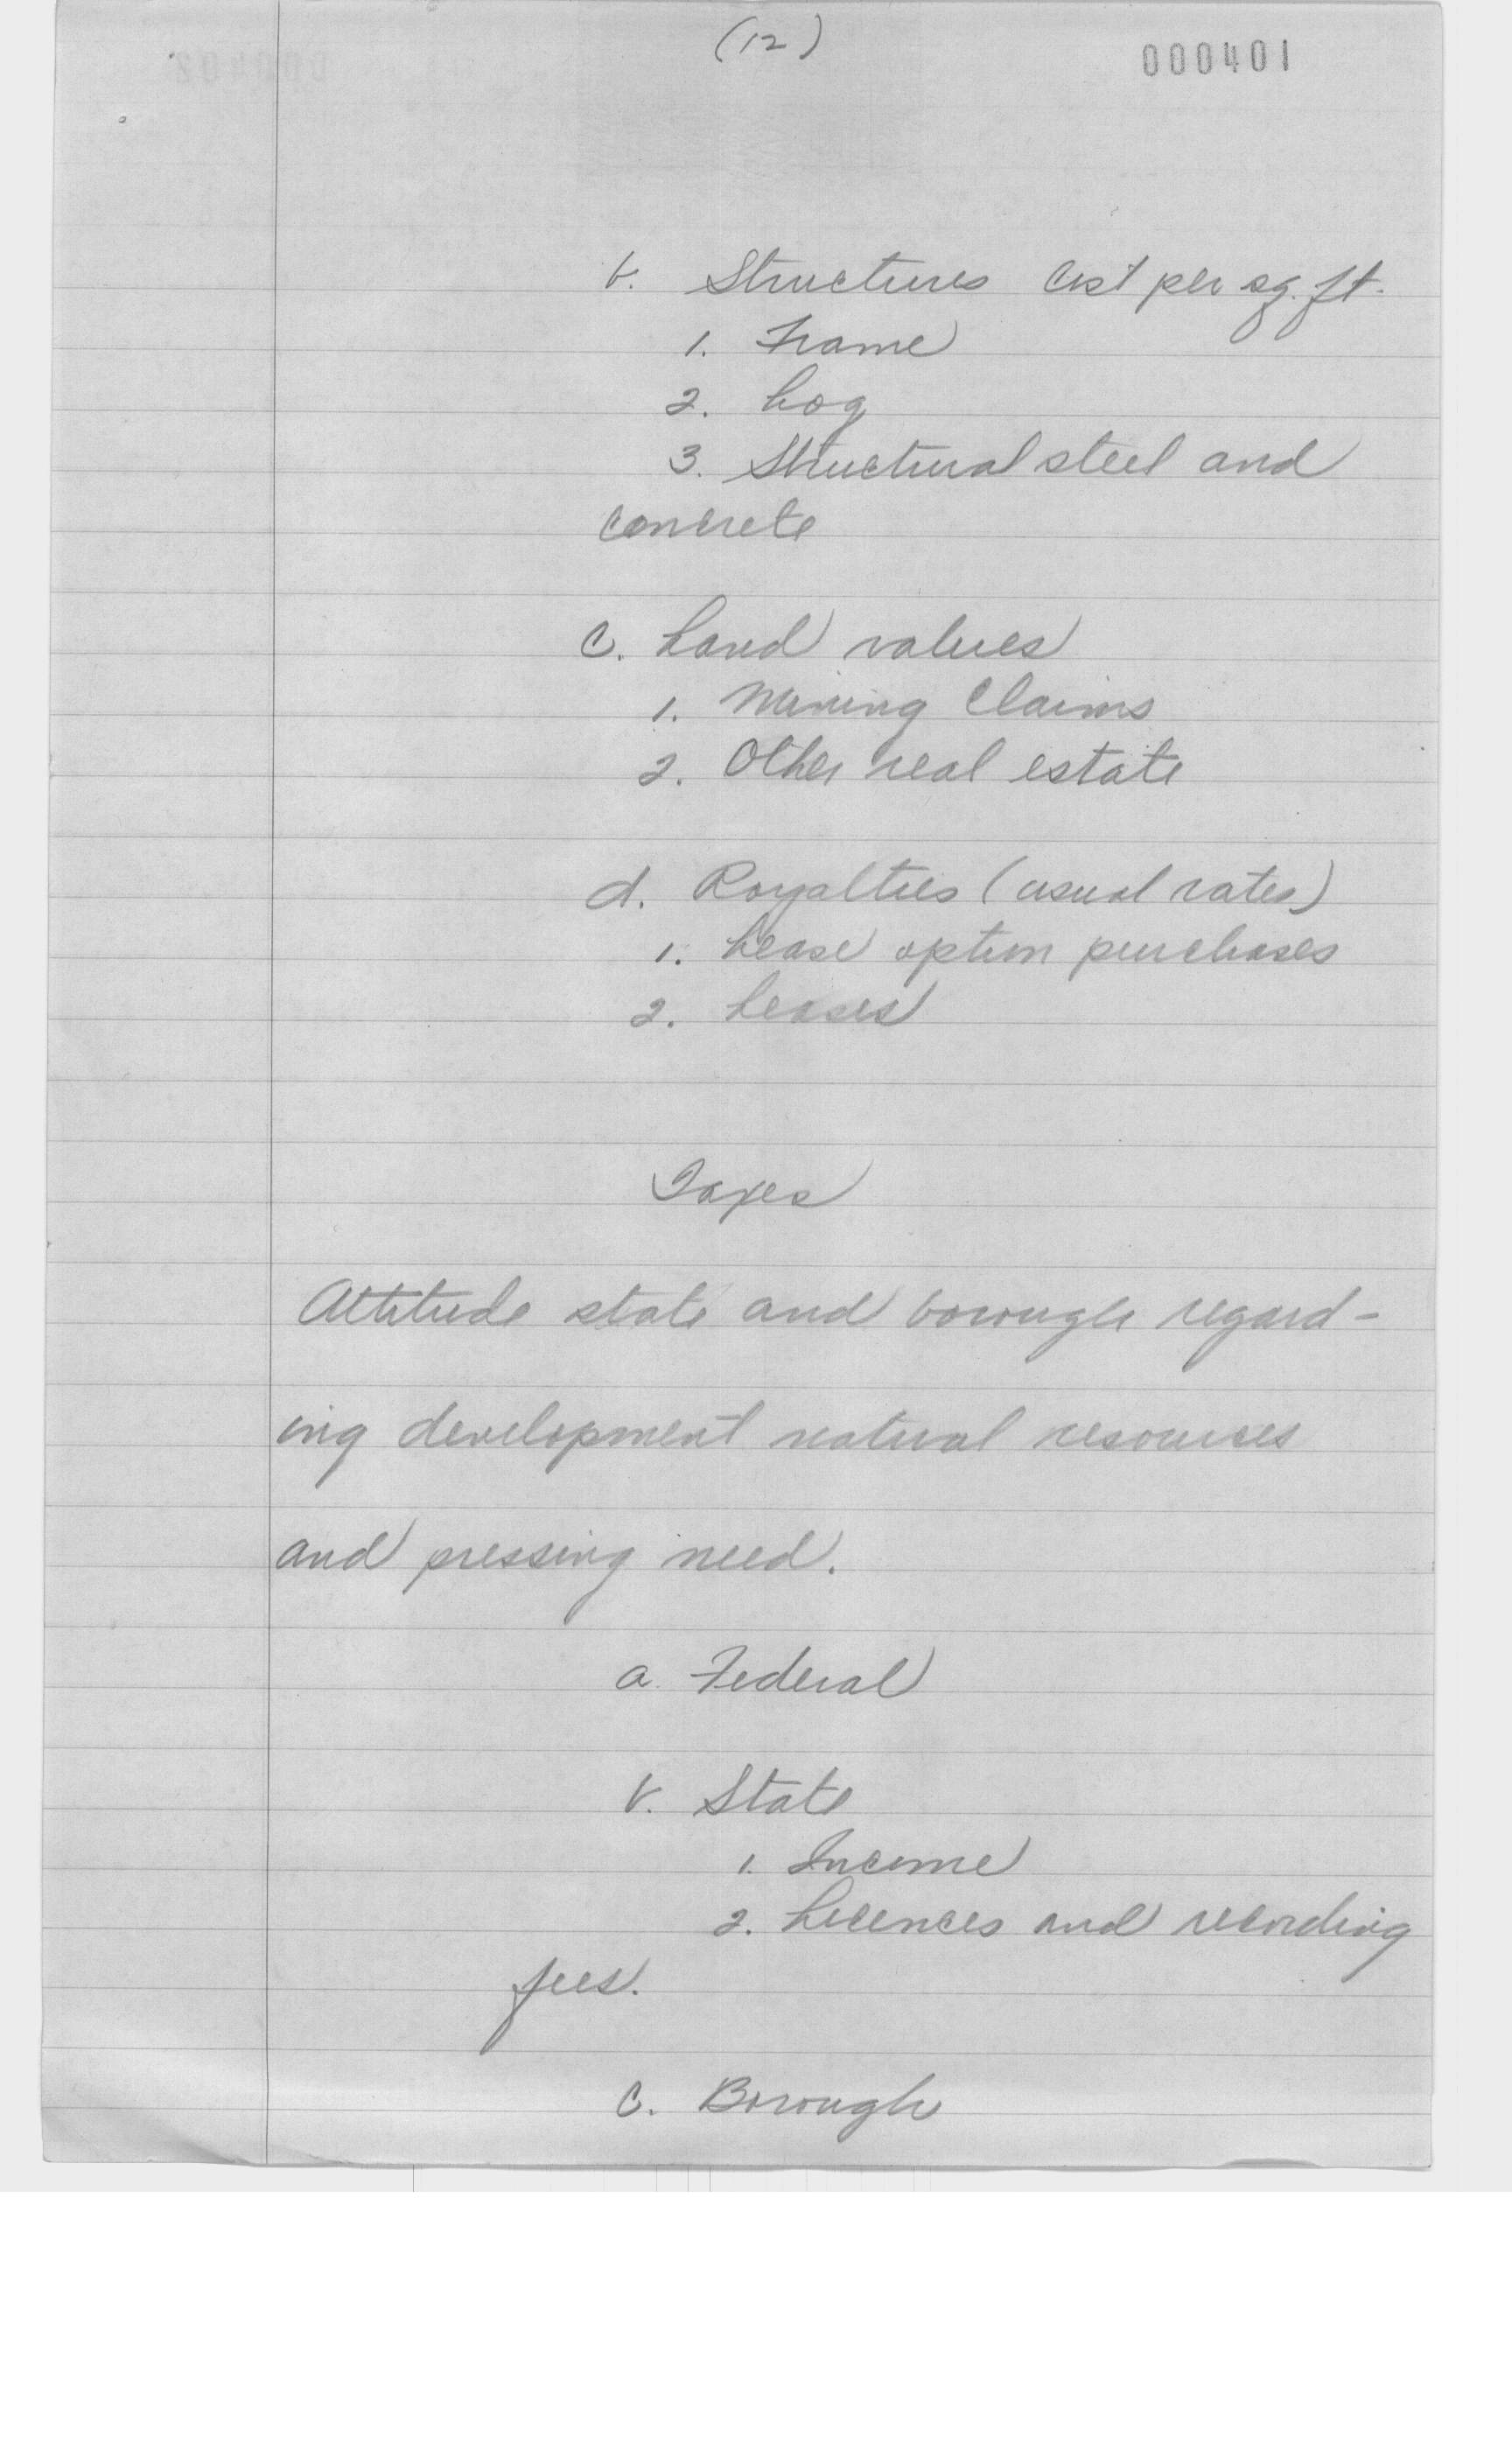 (12)
000401
b. Structures Cost per sq. ft.
1. Frame
2. Log
3. Structural steel and
concrete
c. Land values
1. Mining Claims
2. Other real estate
d. Royalties (usual rates)
1. Lease option purchases
2. Leases
Taxes
Attitude state and borough regard-
ing development natural resources
and pressing need.
a. Federal
b. State
1. Income
2. Licences and recording
fees.
c. Borough